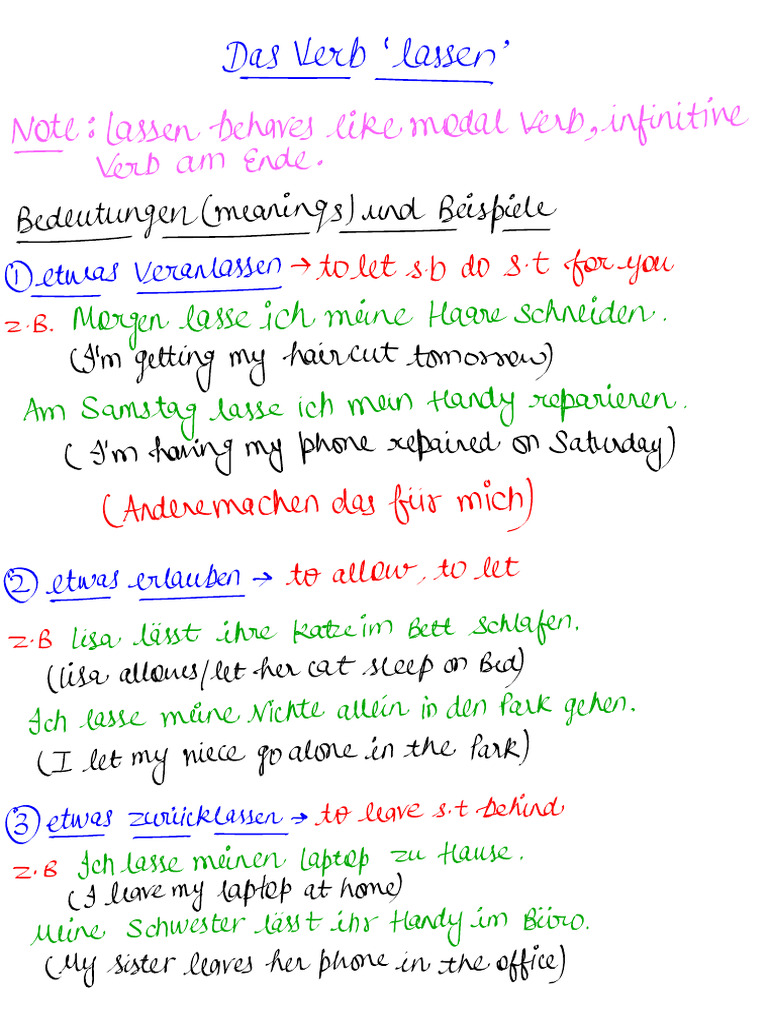 Das Verb 'lassen'
Note: lassen behaves like modal verb, infinitive
verb am Ende.
Bedeutungen (meanings) und Beispiele
① etwas veranlassen → to let s.b do s.t for you
z.B. Morgen lasse ich meine Haare schneiden.
(I'm getting my haircut tomorrow)
Am Samstag lasse ich mein Handy reparieren.
(I'm having my phone repaired on Saturday)
(Andere machen das für mich)
② etwas erlauben → to allow, to let
z.B Lisa lässt ihre Katze im Bett schlafen.
(Lisa allows/let her cat sleep on Bed)
Ich lasse meine Nichte allein in den Park gehen.
(I let my niece go alone in the Park)
③ etwas zurücklassen → to leave s.t behind
z.B Ich lasse meinen Laptop zu Hause.
(I leave my laptop at home)
Meine Schwester lässt ihr Handy im Büro.
(My sister leaves her phone in the office)